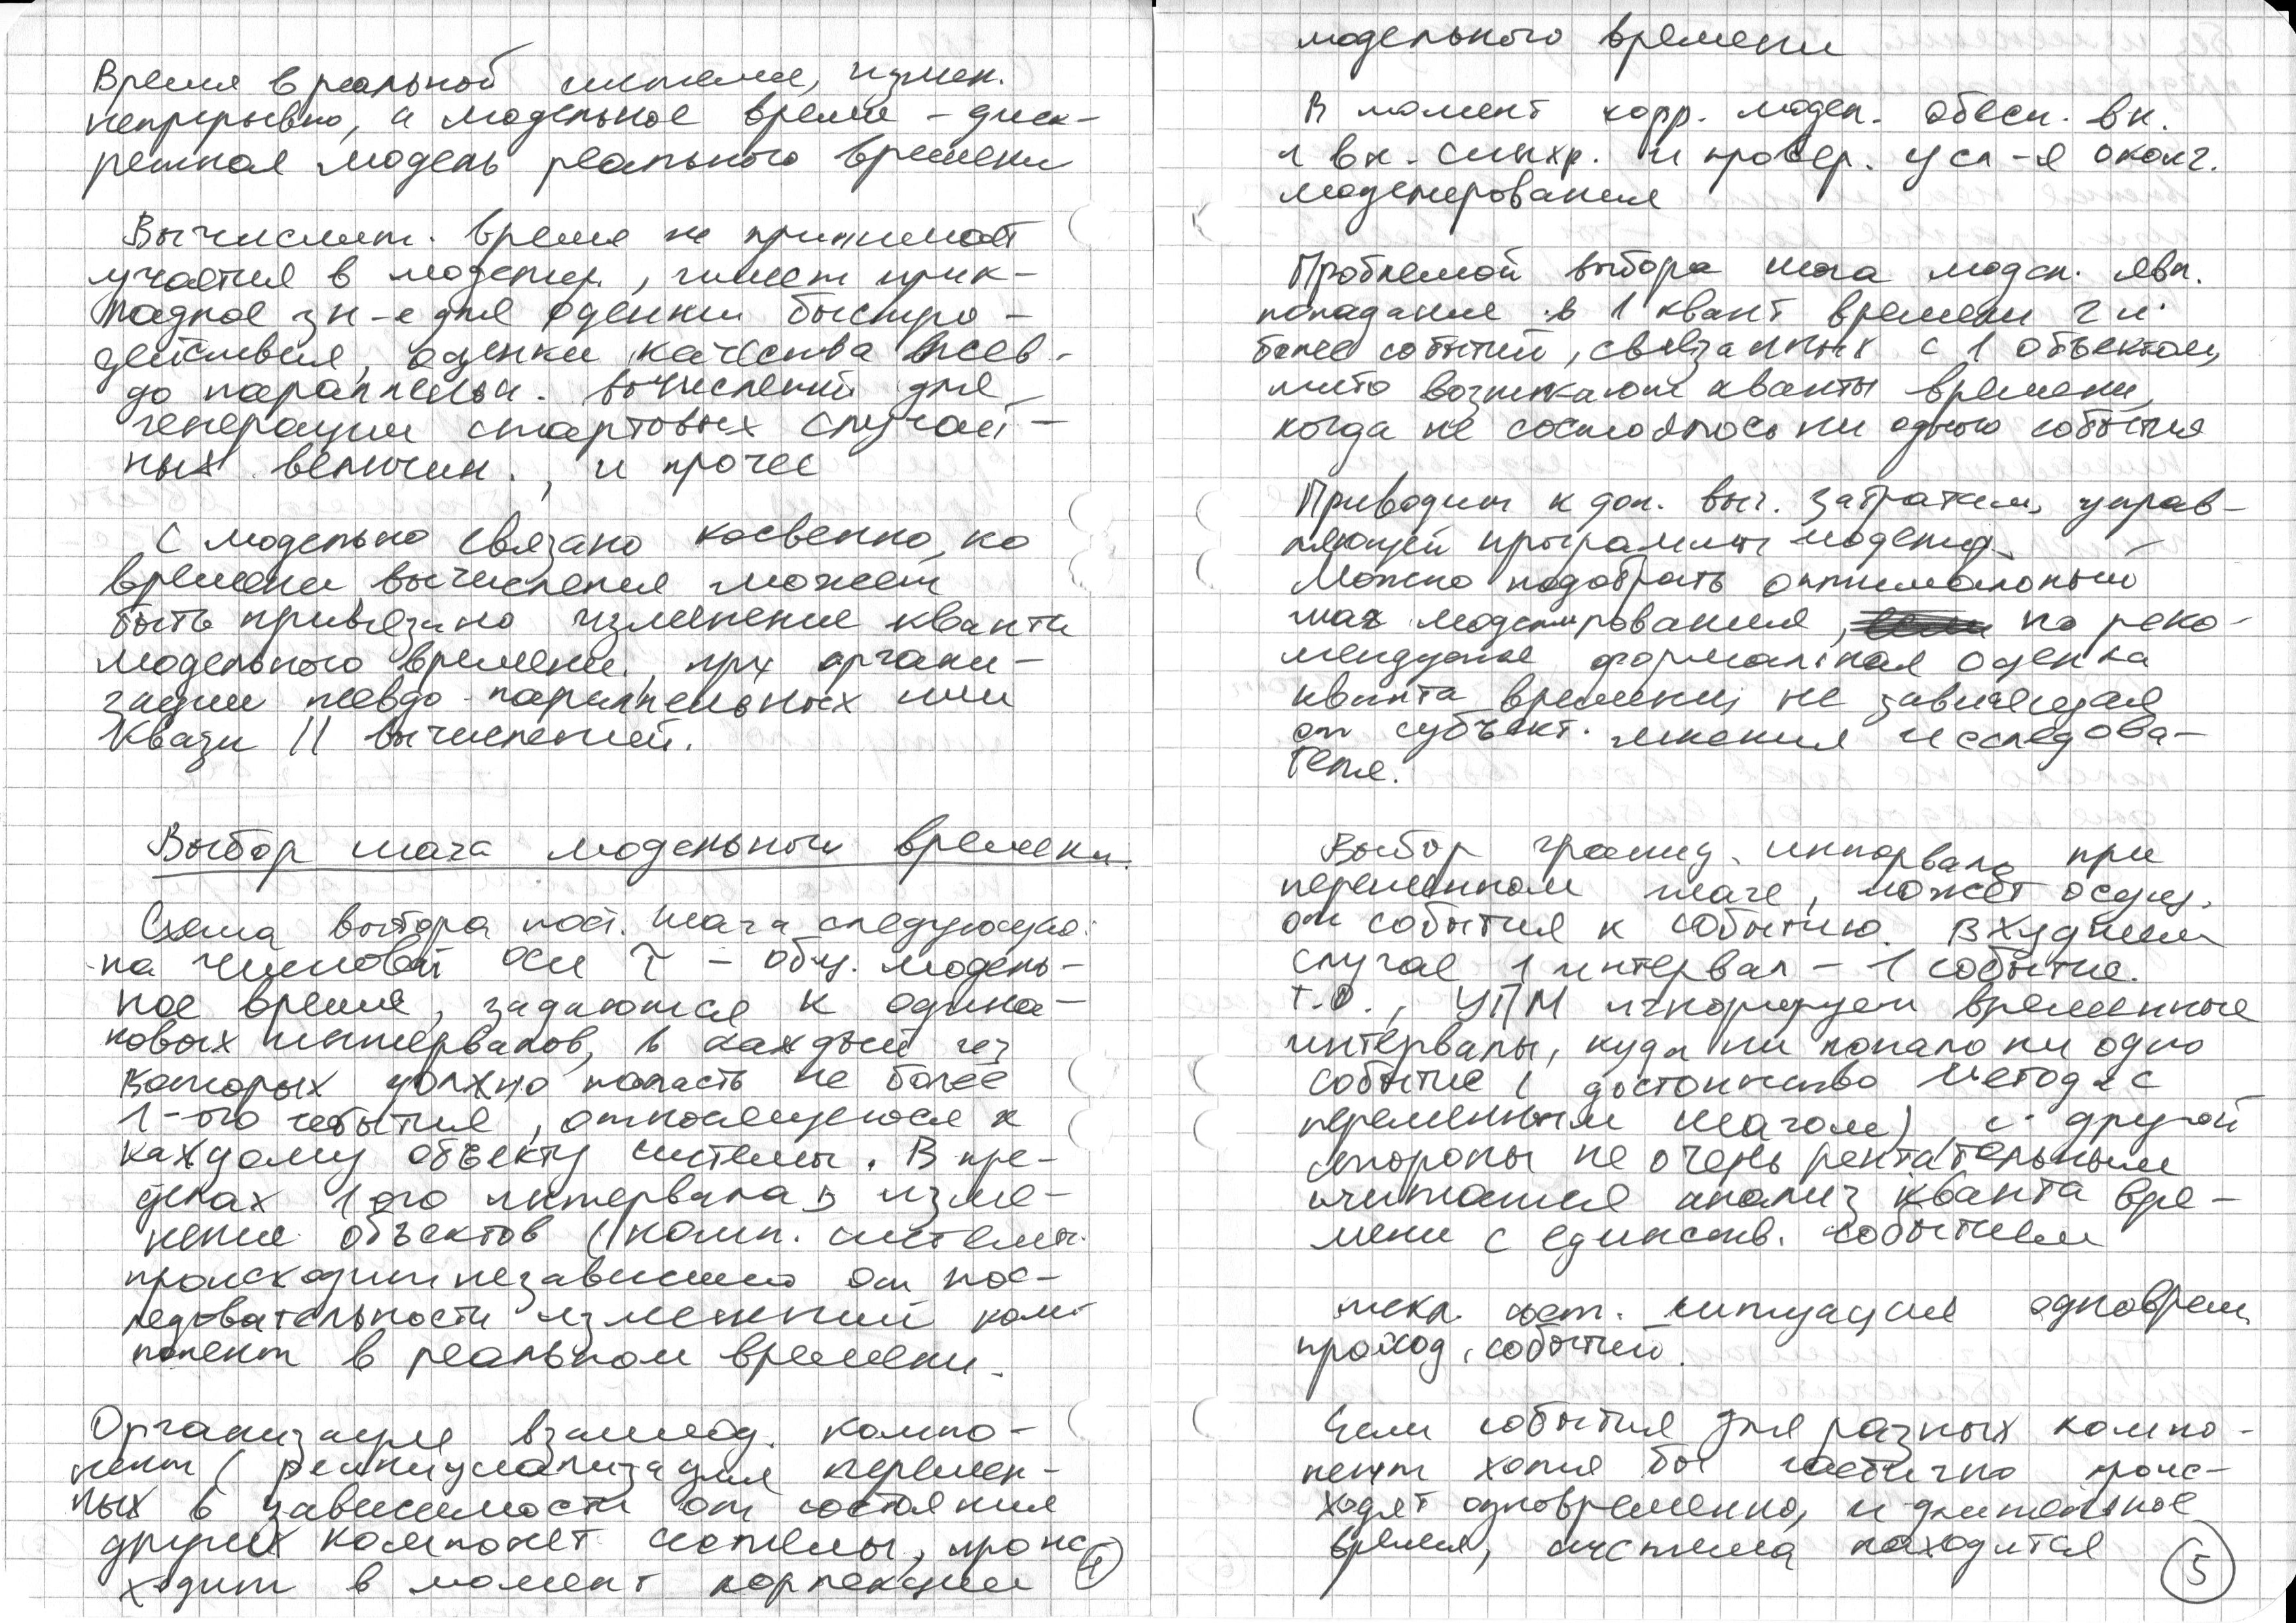 Время в реальной системе, измен.
непрерывно, а модельное время – диск-
ретная модель реального времени
Вычислит. время не принимает
участия в моделир., имеет прик-
ладное зн-е для оценки быстро-
действия, оценки качества псев-
до параллельн. вычислений для
генерации стартовых случай-
ных величин., и прочее
С модельно связано косвенно, но
времени вычисления может
быть привязано изменение кванта
модельного времени, при органи-
зации псевдо-параллельных или
квази || вычислений.
Выбор шага модельного времени.
Схема выбора пост. шага следующая:
на числовой оси τ – общ. модель-
ное время, задаются к одина-
ковых интервалов, в каждый из
которых должно попасть не более
1-ого события, относящегося к
каждому объекту системы. В пре-
делах 1ого интервала изме-
нение объектов (комп. системы
происходит независимо от пос-
ледовательности изменений ком-
понент в реальном времени.
Организация взаимод. компо-
нент (реинициализация перемен-
ных в зависимости от состояния
других компонент системы, проис
ходит в момент коррекции
4
модельного времени
В момент корр. модел. обесп. вн.
и вн. синхр. и провер. усл-я оконч.
моделирования
Проблемой выбора шага модел. явл.
попадание в 1 квант времени 2 и
более событий, связанных с 1 объектом,
либо возникают кванты времени,
когда не состоялось ни одного события
Приводит к доп. выч. затратам, управ-
ляющей программы моделир.
Можно подобрать оптимальный
шаг моделирования, но реко-
мендуемая формальная оценка
кванта времени, не зависящая
от субъект. мнения исследова-
теля.
Выбор границ. интервала при
переменном шаге, может осущ.
от события к событию. В худшем
случае 1 интервал – 1 событие.
Т.о., УПМ игнорирует временные
интервалы, куда ни попало ни одно
событие (достоинство метода с
переменным шагом), с другой
стороны не очень рентабельным
считается анализ кванта вре-
мени с единств. событием
сост. ситуация одноврем.
проход. событий.
Если события для разных компо-
нент хотя бы частично проис-
ходят одновременно, и длительное
время, система находится
5